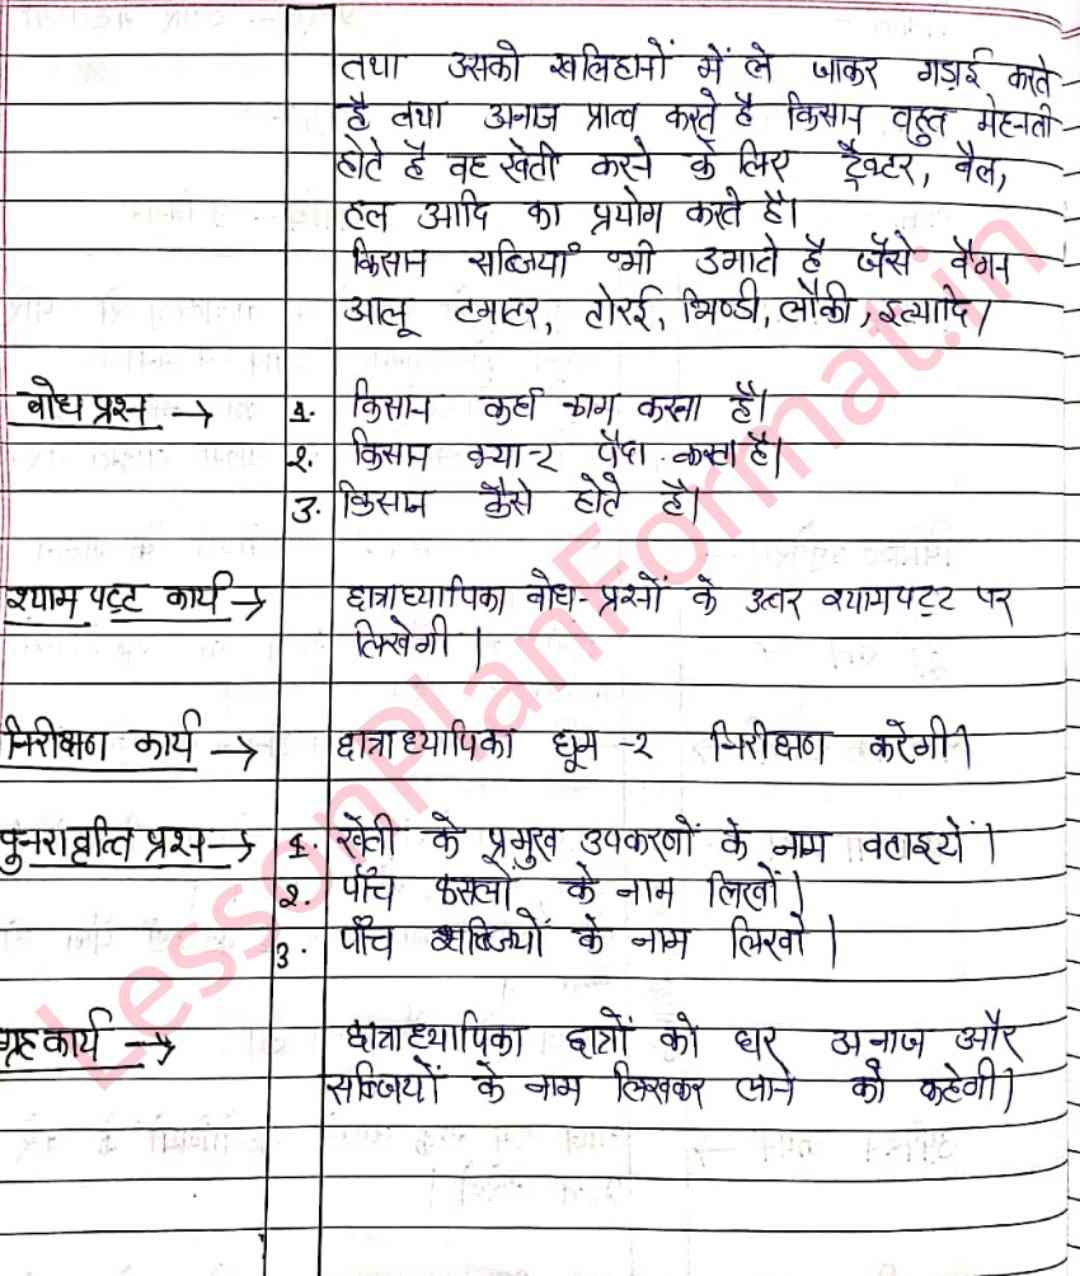 तथा उसको खलिहानों में ले जाकर गड़ाई करते
है तथा अनाज प्राप्त करते है किसान बहुत मेहनती
होते है वह खेती करने के लिए ट्रैक्टर, बैल,
हल आदि का प्रयोग करते है।
किसान सब्जियाँ भी उगाते है जैसे बैंगन
आलू टमाटर, तोरई, भिण्डी, लौकी, इत्यादि।
बोध प्रश्न → 1. किसान कहाँ काम करता है।
2. किसान क्या-2 पैदा करता है।
3. किसान कैसे होते है।
श्याम पट्ट कार्य → छात्राध्यापिका बोध-प्रश्नों के उत्तर श्यामपट्ट पर
लिखेगी।
निरीक्षण कार्य → छात्राध्यापिका घूम-2 निरीक्षण करेगी।
पुनरावृत्ति प्रश्न → 1. खेती के प्रमुख उपकरणों के नाम बताइयें।
2. पाँच फसलों के नाम लिखों।
3. पाँच सब्जियों के नाम लिखो।
ग्रहकार्य → छात्राध्यापिका छात्रों को घर अनाज और
सब्जियों के नाम लिखकर लाने को कहेगी।
LessonPlanFormat.in